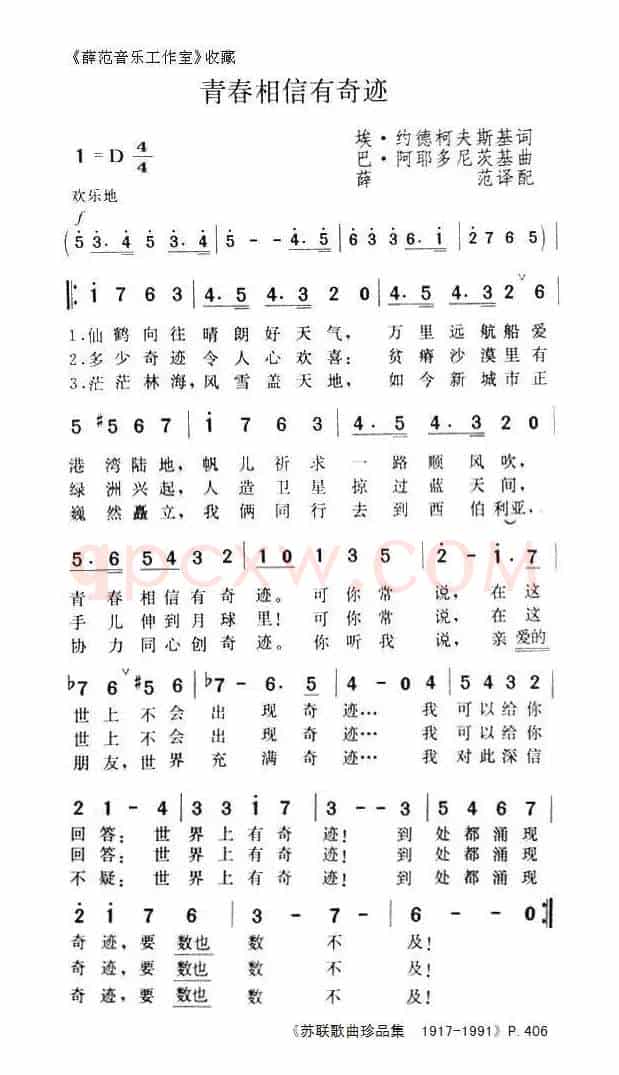 《薛范音乐工作室》收藏
青春相信有奇迹
1=D 4/4
埃·约德柯夫斯基词
巴·阿耶多尼茨基曲
薛 范译配
欢乐地
f
(5 3. 4 5 5 3. 4 | 5 - - 4. 5 | 6 3 3 6. 1 | 2 7 6 5)
‖: 1 7 6 3 | 4. 5 4. 3 2 0 | 4. 5 4. 3 2 6 |
1.仙鹤向往晴朗好天气, 万里远航船爱
2.多少奇迹令人心欢喜: 贫瘠沙漠里有
3.茫茫林海,风雪盖天地, 如今新城市正
5 #5 6 7 | 1 7 6 3 | 4. 5 4. 3 2 0 |
港湾陆地,帆儿祈求一路顺风吹,
绿洲兴起,人造卫星掠过蓝天间,
巍然矗立,我俩同行去到西伯利亚,
5. 6 5 4 3 2 | 1 0 1 3 5 | 2 - 1. 7 |
qpcxw.COM
青春相信有奇迹。可你常说,在这
手儿伸到月球里!可你常说,在这
协力同心创奇迹。你听我说,亲爱的
b7 6 #5 6 | b7 - 6. 5 | 4 - 0 4 | 5 4 3 2 |
世上不会出现奇迹…我可以给你
世上不会出现奇迹…我可以给你
朋友,世界充满奇迹…我对此深信
2 1 - 4 | 3 3 1 7 | 3 - - 3 | 5 4 6 7 |
回答:世界上有奇迹!到处都涌现
回答:世界上有奇迹!到处都涌现
不疑:世界上有奇迹!到处都涌现
2 1 7 6 | 3 - 7 - | 6 - - 0 :‖
奇迹,要数也数不及!
奇迹,要数也数不及!
奇迹,要数也数不及!
《苏联歌曲珍品集 1917-1991》P. 406